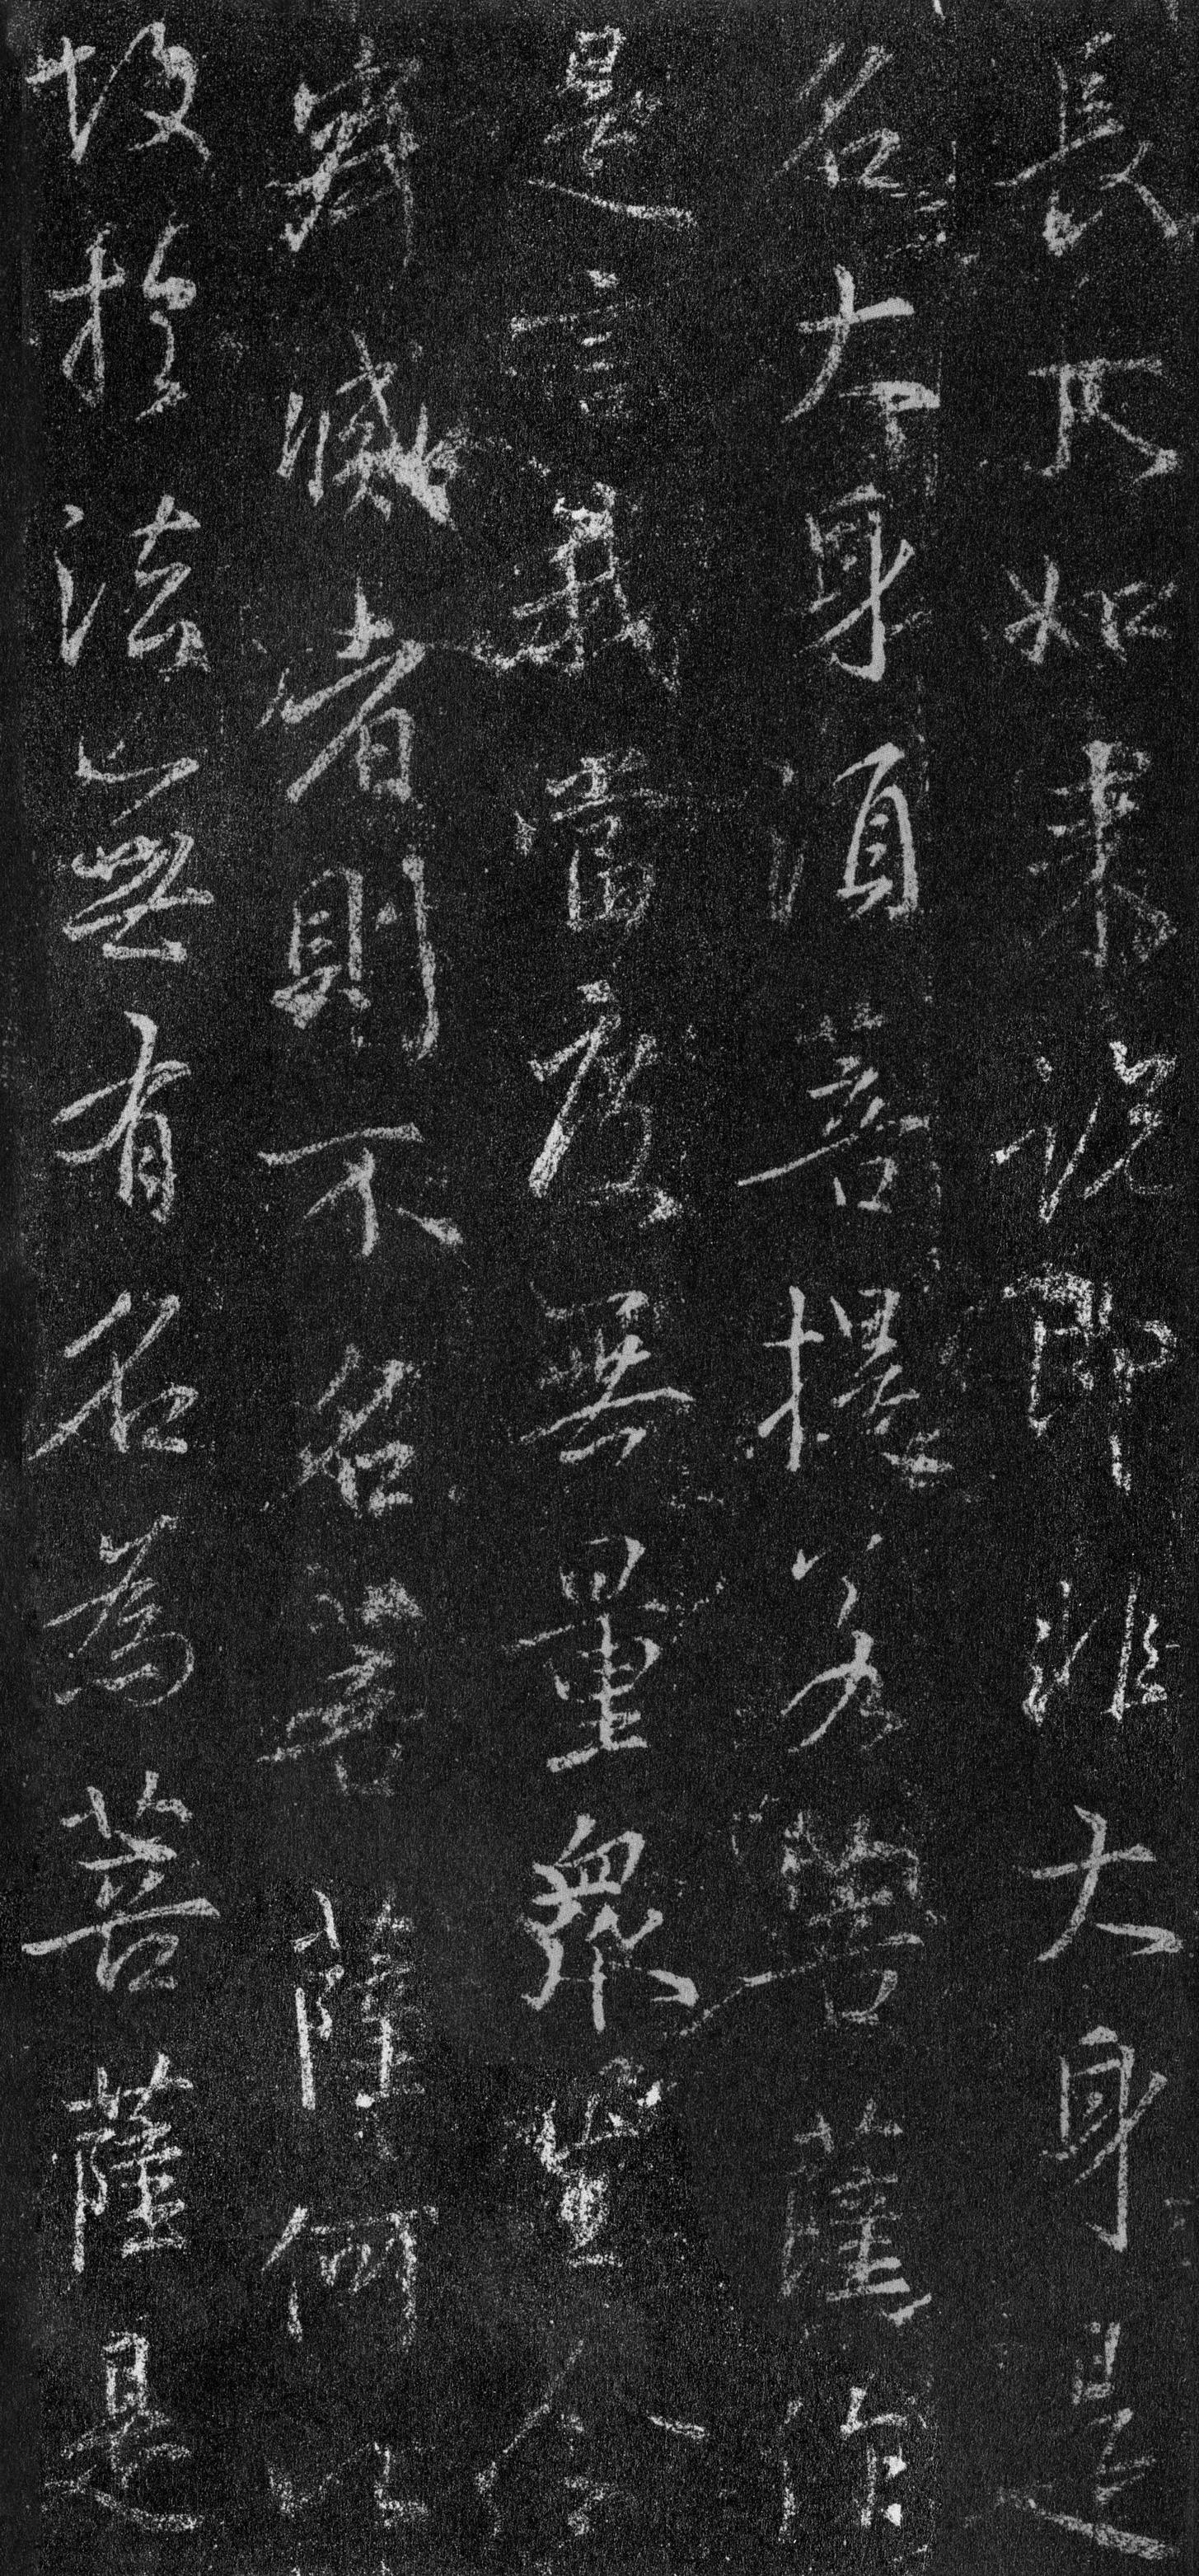 長乃如來說即非大身是
名大身須菩提公爾菩薩作
是言我當度無量衆生令
寂滅者則不名菩薩何以
故於法亦無有名為菩薩是